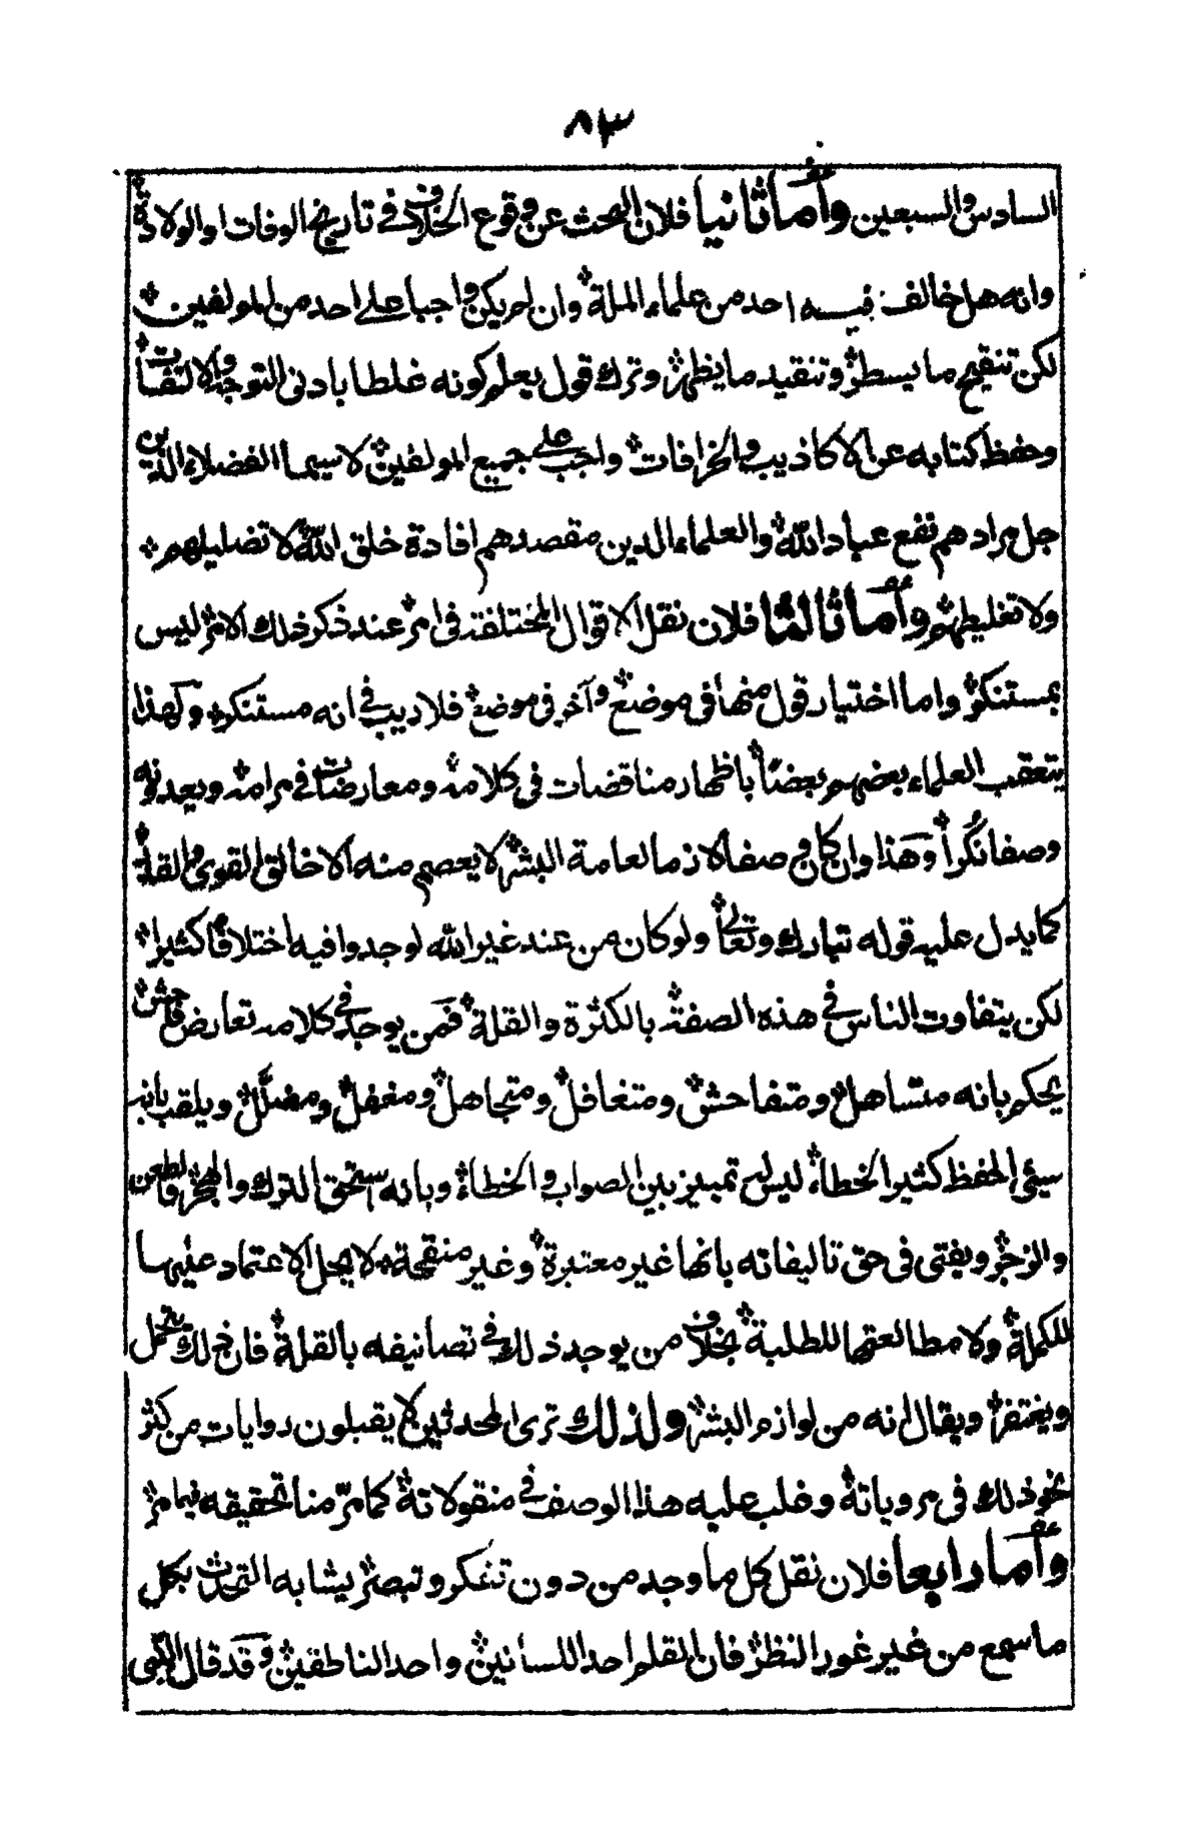 ٨٣
السادس والسبعين وأما ثانيا فلان البحث عن وقوع الخلاف في تاريخ الوفات او الولادة
وانه هل خالف فيه احد من علماء الملة وان لم يكن واجبا على احد من المولفين
لكن تنقيح ما يسطر وتنقيد ما يظهر وترك قول يعلم كونه غلطا بادنى التوجه والالتفات
وحفظ كتابه عن الاكاذيب والخرافات واجب على جميع المولفين لا سيما الفضلاء الذين
جل مرادهم نفع عباد الله والعلماء الدين مقصدهم افادة خلق الله لا تضليلهم
ولا تغليطهم وأما ثالثا فلان نقل الاقوال المختلفة في امر عند ذكر ذلك الامر ليس
بمستنكر واما اختيار قول منها في موضع وآخر في موضع فلا ريب في انه مستنكر وكهذا
يتعقب العلماء بعضهم بعضاً باظهار مناقضات في كلامه ومعارضات في مرامه ويعدونه
وصفا نُكراً وهذا وان كان وصفا لازما لعامة البشر لا يعصم منه الا خالق القوى والقلة
كما يدل عليه قوله تبارك وتعالى ولو كان من عند غير الله لوجدوا فيه اختلافا كثيرا
لكن يتفاوت الناس في هذه الصفة بالكثرة والقلة فمن يوجد في كلامه تعارض فاحش
يحكم بانه متساهل ومتفاحش ومتغافل ومتجاهل ومغفل ومضلل ويلقب بانه
سيئى الحفظ كثير الخطاء ليس له تمييز بين الصواب والخطاء وبانه استحق الترك والهجر والطعن
والزجر ويفتى في حق تاليفاته بانها غير معتبرة وغير منقحة لا يحل الاعتماد عليها
للكملة ولا مطالعتها للطلبة بخلاف من يوجد ذلك في تصانيفه بالقلة فان ذلك يتحمل
ويغتفر ويقال انه من لوازم البشر ولذلك ترى المحدثين لا يقبلون روايات من كثر
نحو ذلك في مروياته وغلب عليه هذا الوصف في منقولاته كما مرّ منا تحقيقه فيما مر
وأما رابعا فلان نقل كل ما وجد من دون تفكر وتبصر يشابه التحدث بكل
ما سمع من غير غور النظر فان القلم احد اللسانين واحد الناطقين وقد قال النبى